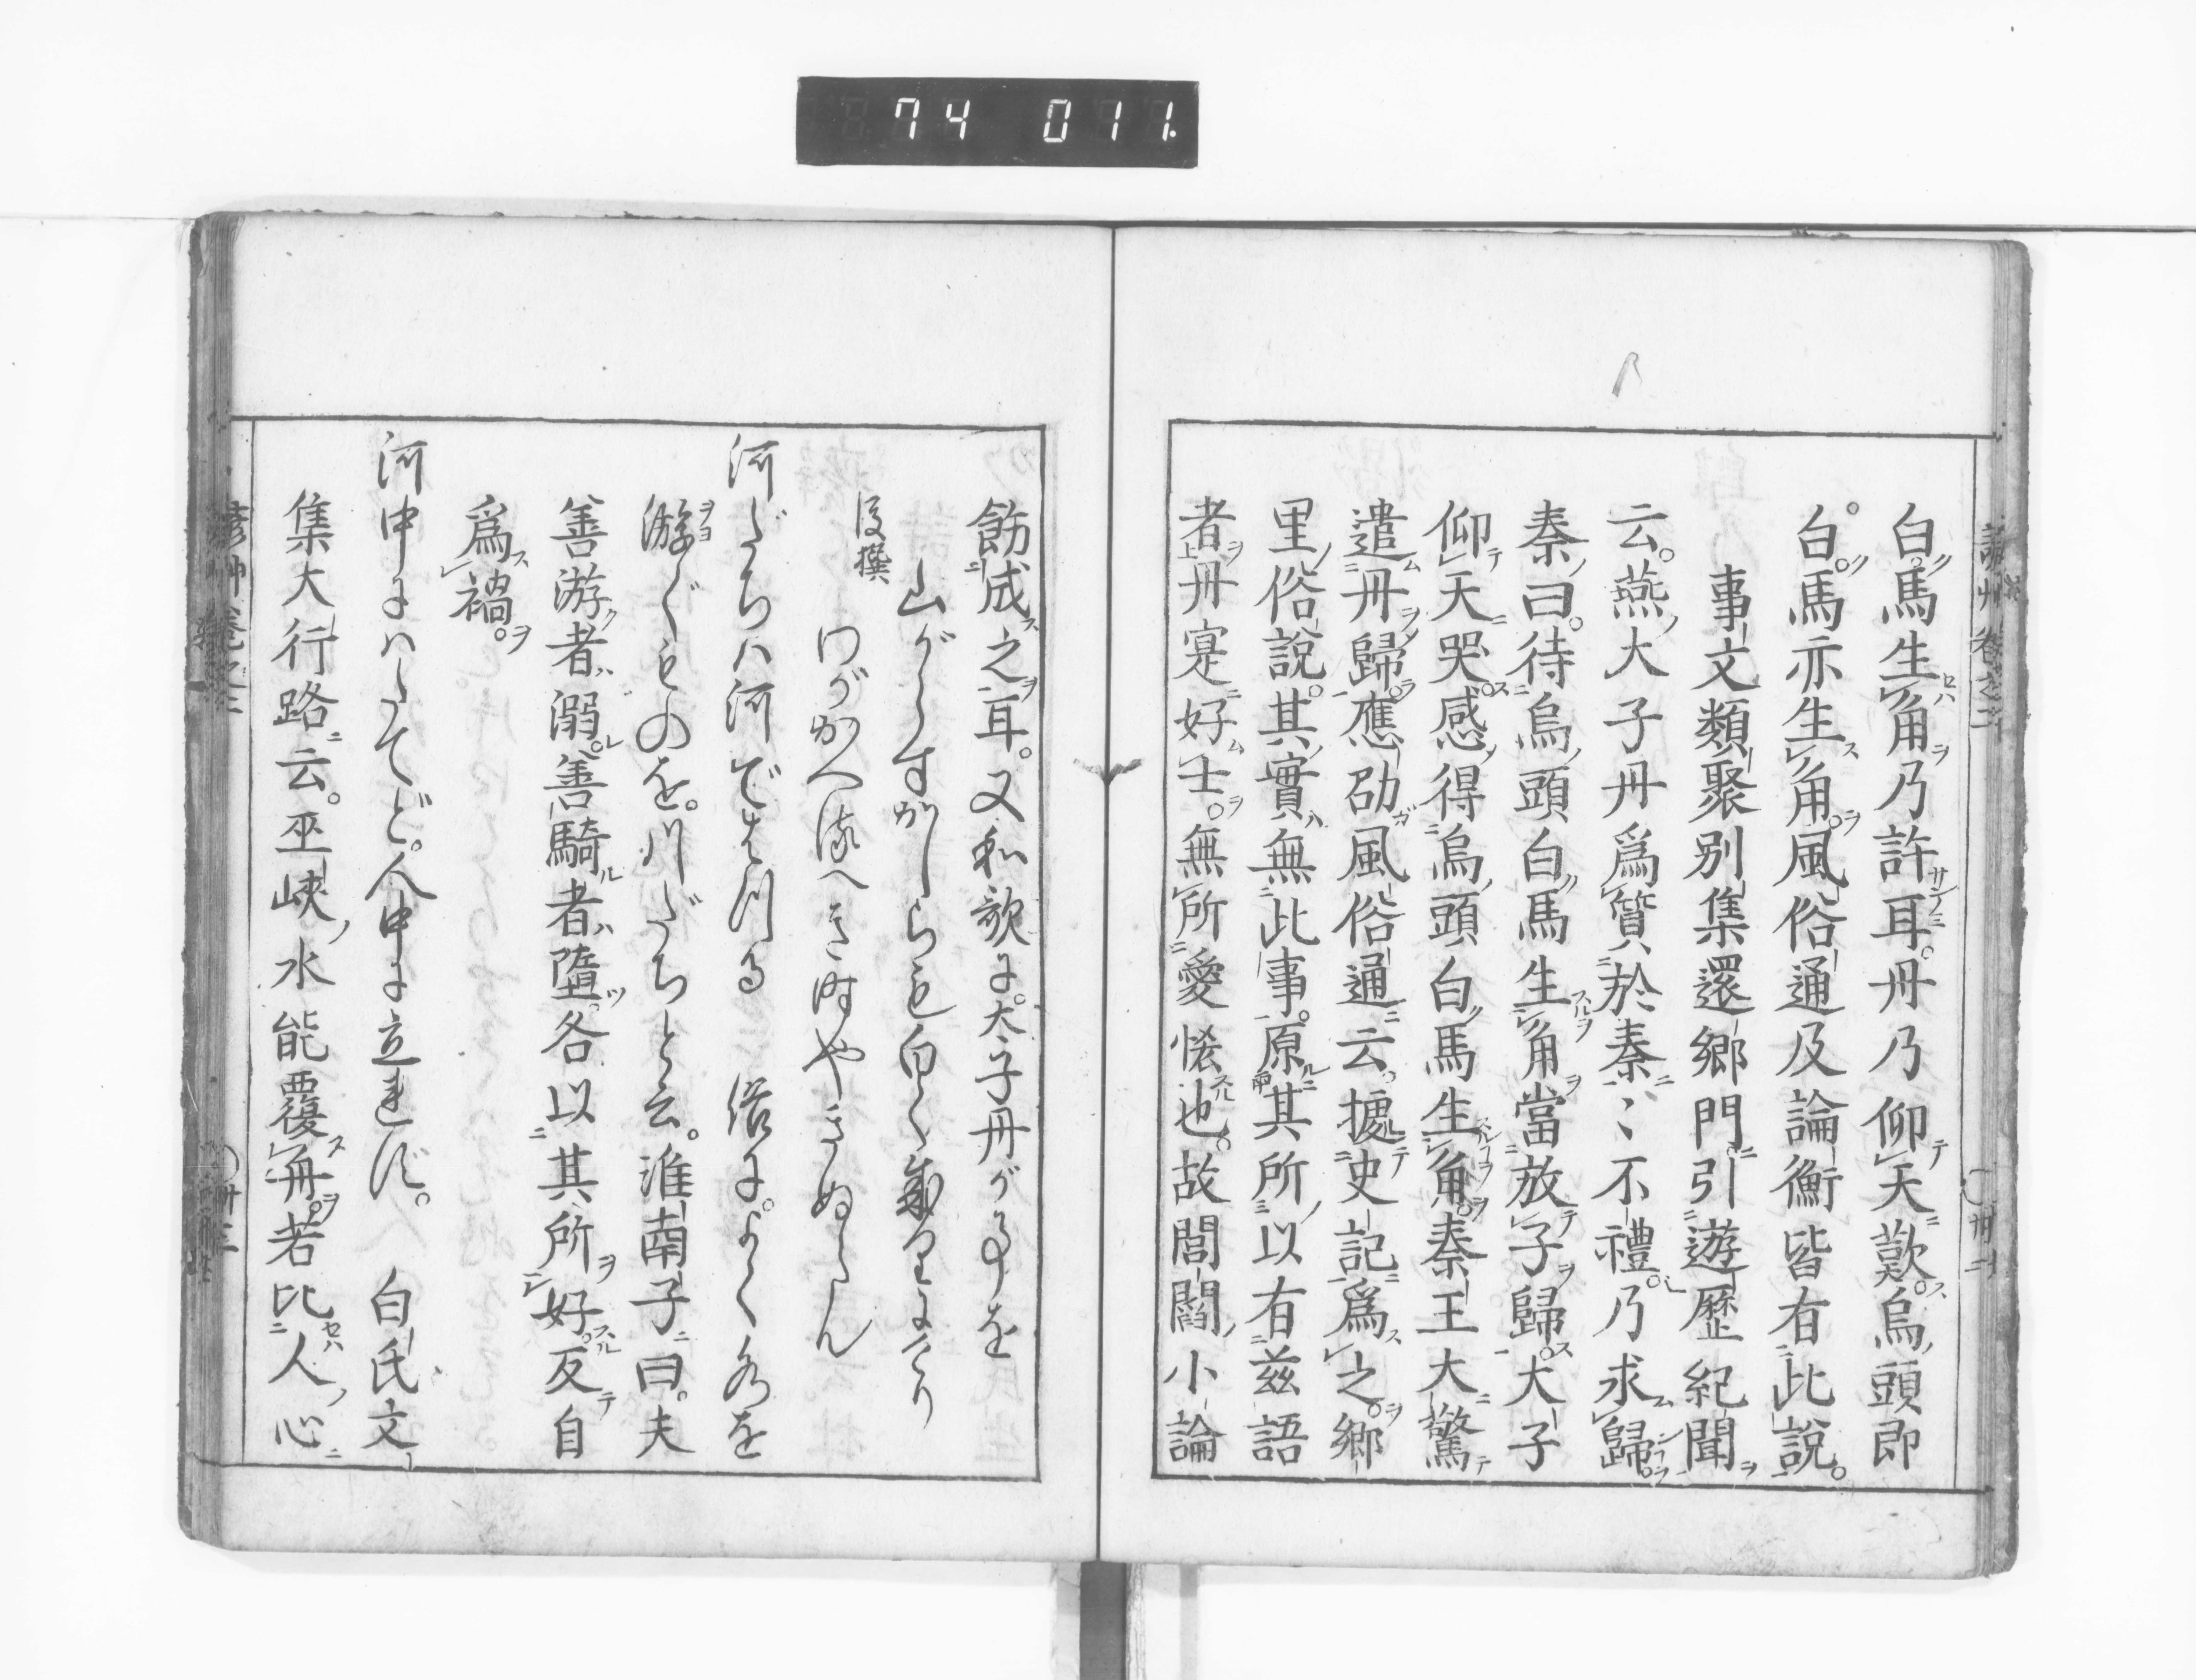 74 011
白馬生角乃許耳。丹乃仰天歎。烏頭即
白。馬亦生角。風俗通及論衡皆有此說。
事文類聚別集還鄉門引遊歷紀聞
云。燕大子丹爲質於秦〻不禮。乃求歸。
秦曰。待烏頭白馬生角當放子歸。大子
仰天哭。感得烏頭白馬生角。秦王大驚
遣丹歸。應劭風俗通云。攄史記爲之。鄉
里俗說。其實無此事。原其所以有茲語
者丹寔好士。無所愛悋也。故閭閻小論
飭成之耳。又和歌に。太子丹がる事を
後撰
山がらすかしらも白く成にけり
わがかへるへき時やきぬらん
河だちハ河ではつる 俗に。よく水を
游ぐものを。川だちと云。淮南子曰。夫
善游者溺。善騎者墮。各以其所好反自
爲禍。
河中にハたてど。人中に立れず。 白氏文
集大行路云。巫峽水能覆舟。若比人心